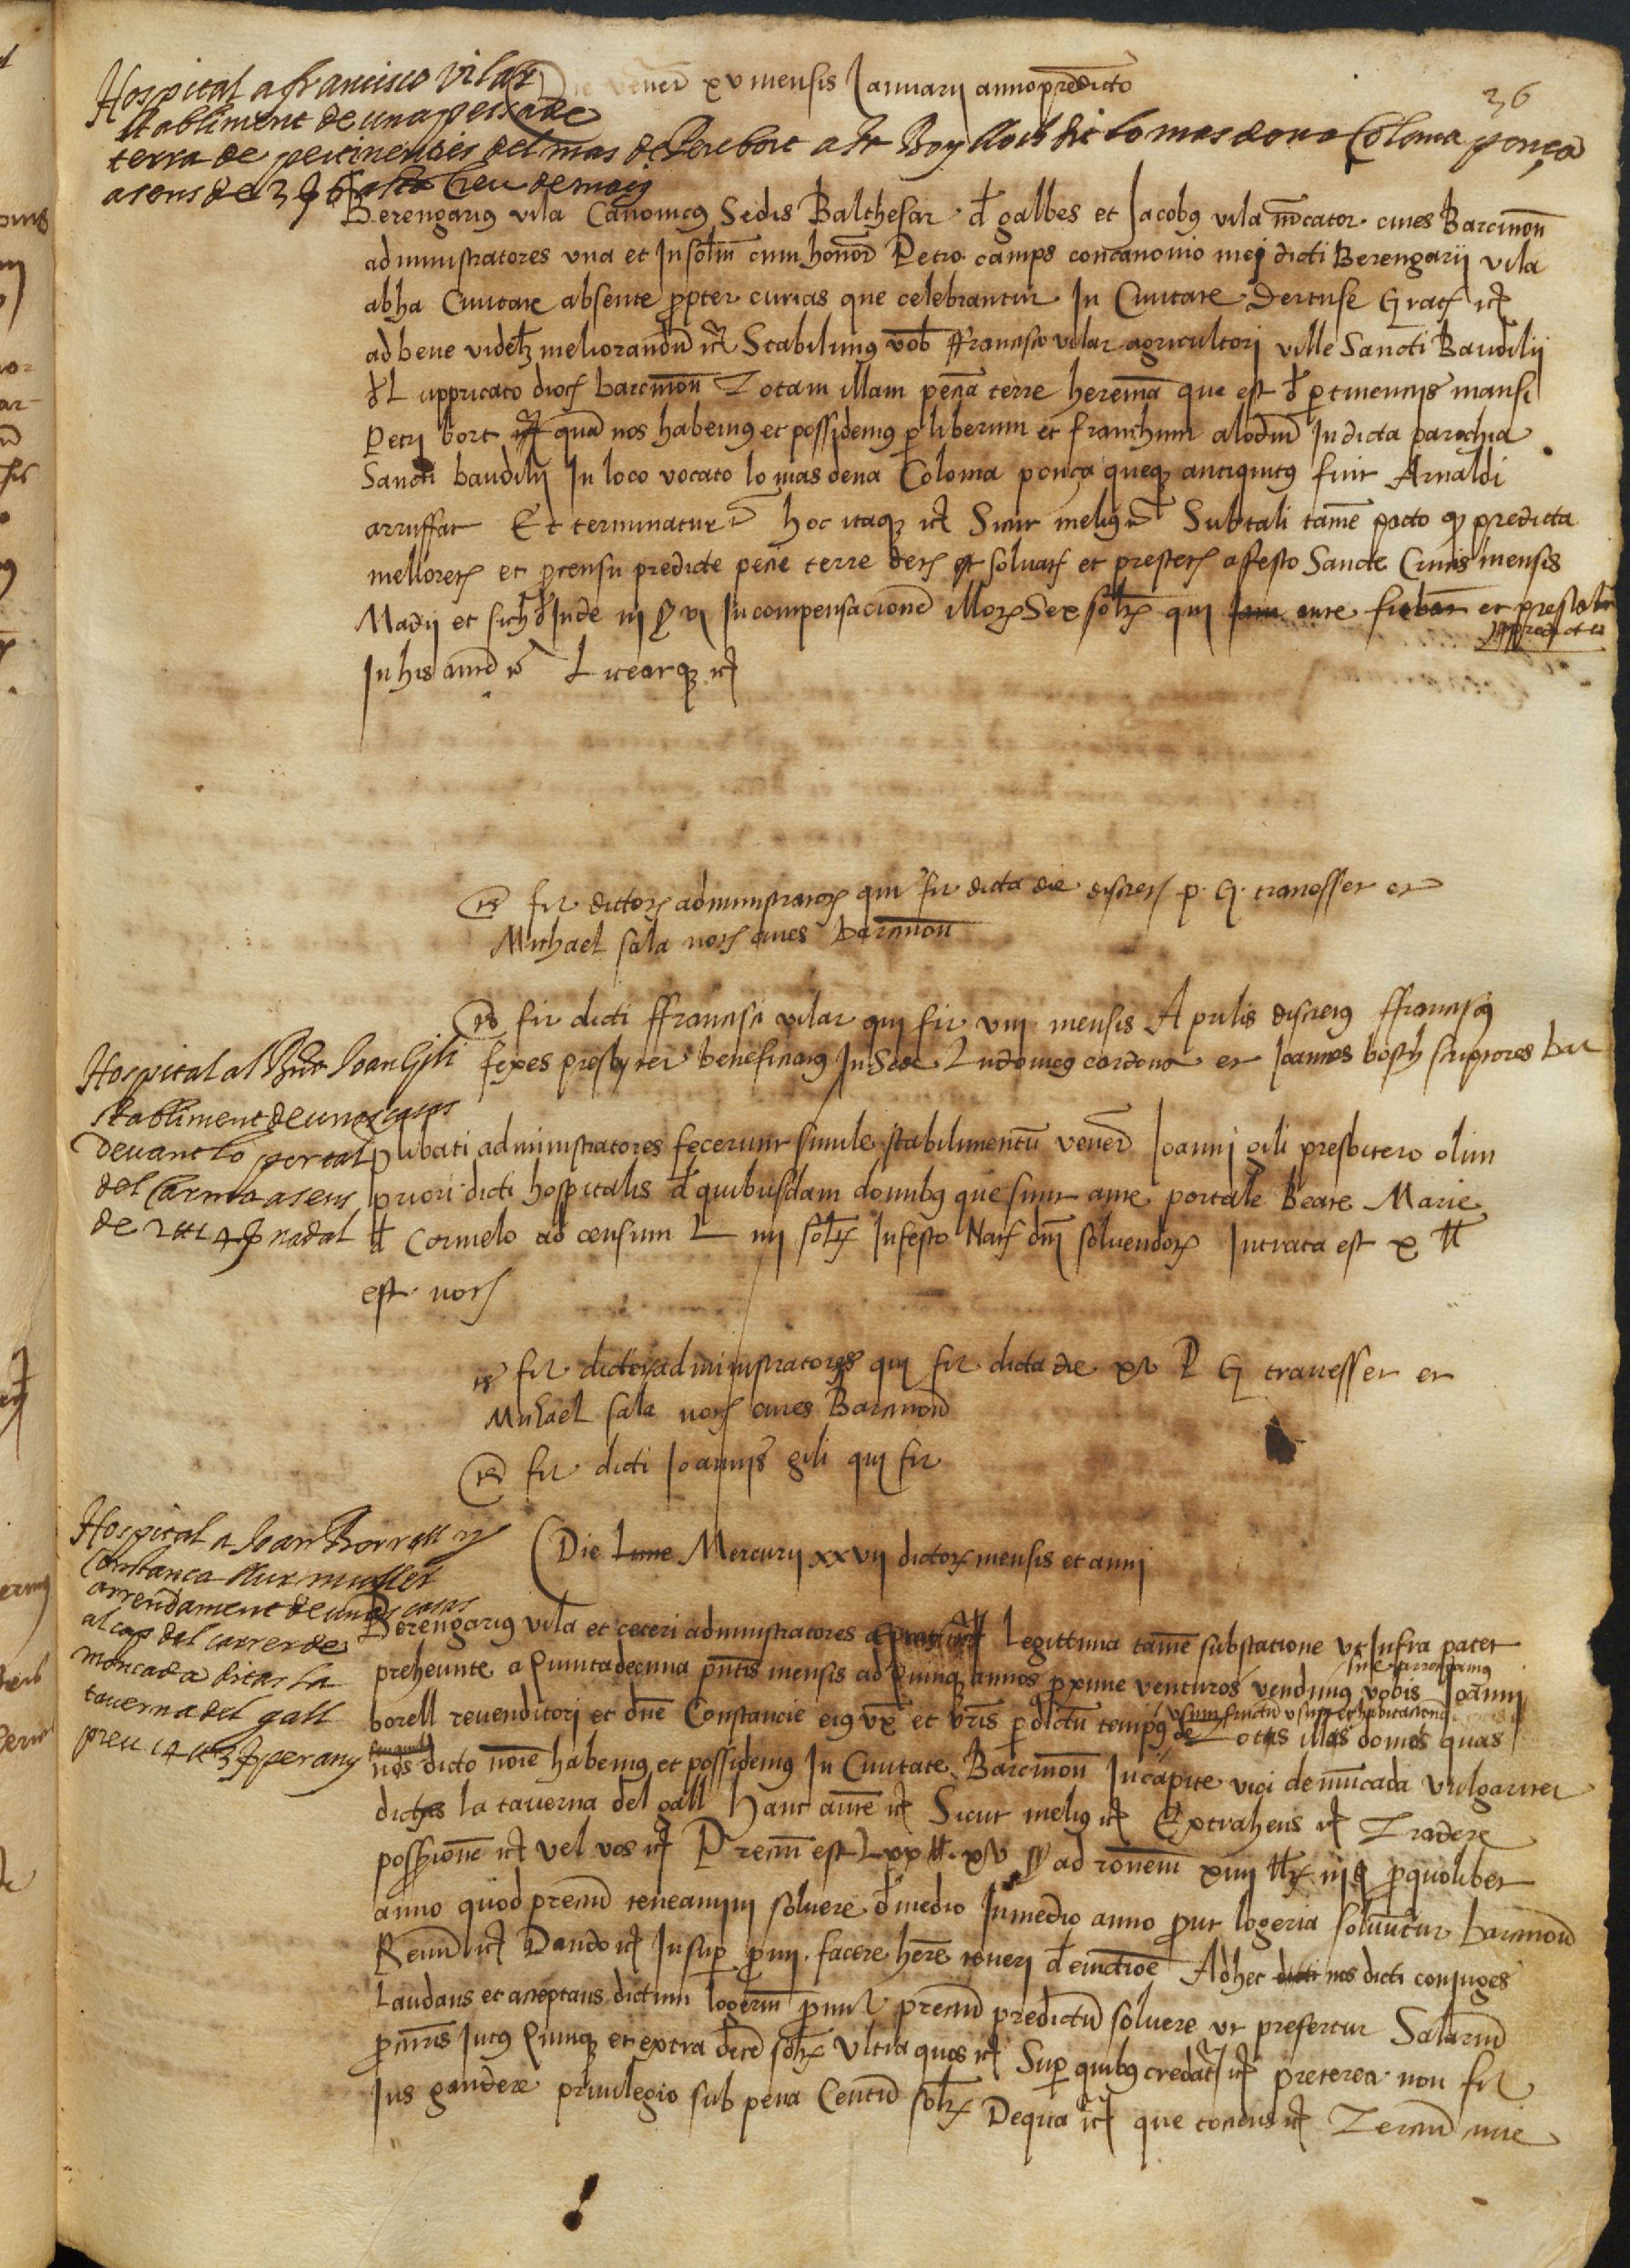 Die veneris xv mensis Januarii anno predicto
36
Hospital a francisco vilar
stabliment de una pessa de
terra de pertinencies del mas de Pere bort a St Boy lloch dit lo mas de na Coloma ponça
a sens de 3 ß 6 a sta Creu de maig
Berengarius vila Canonicus Sedis Balthesar de galbes et Jacobus vila mercator cives Barcinon
administratores una et In solidum cum honor Petro camps concanonico mei dicti Berengarii vila
ab ha Civitate absente propter curias que celebrantur In Civitate Dertuse Gratis etc
ad bene videlicet meliorandum etc Stabilimus vob ffrancisco vilar agricultori ville Sancti Baudilii
de Luppricato dioc barcinon Totam illam peciam terre heremam que est de pertinenciis mansi
Petri bort quam nos habemus et possidemus per liberum et franchum alodium In dicta parochia
Sancti baudilii In loco vocato lo mas de na Coloma ponça queque antiquitus fuit Arnaldi
arruffat Et terminatur etc hoc itaque etc Sicut melius etc Sub tali tamen pacto quod predicta
melloretis et pro censu predicte pecie terre detis et solvatis et prestetis a festo Sancte Crucis mensis
Madii et sich deinde iii ß vi In compensacionem illorum Sex solidorum qui ante fiebant et prestabantur
pro predictis
In his autem etc Liceatque etc
Tes fir dictorum administratorum qui fir dicta die discreti P. G. travesser et
Michael sala nots cives barcinon
Tes fir dicti ffrancisci vilar qui fir viii mensis Aprilis discretus ffranciscus
fexes presbyter beneficiatus In Sede Ludovicus cardona et Joannes bosch scriptores bar
Hospital al Joan Gili
stabliment de unes cases
devant lo portal
del Carme a sens
de 2 ll 4 ß nadal
prelibati administratores fecerunt simile stabilimentum vener Joanni gili presbitero olim
priori dicti hospitalis de quibusdam domibus que sunt ante portale Beate Marie
de Carmelo ad censum L iiii solidorum In festo Nats dni solvendorum Intrata est x ll
est nots
Tes fir dictorum administratores qui fir dicta die xv P G travesser et
Michael sala nots cives Barcinon
Tes fir dicti Joannis gili qui fir
Die Lune Mercurii xxvii dictorum mensis et anni
Hospital a Joan Borrell y
Constanca sua muller
arrendament de unes cases
al cap del carrer de
moncada ditas la
taverna del gall
preu 14 ll 3 ß per any
Berengarius vila et ceteri administratores Legittima tamen substacione ut Infra patet
preheunte a Quintadecima pntis mensis ad Quinque annos proxime venturos vendimus vobis Joanni
sive arrendamus
borell revenditori et dne Constancie eius uxori et vestris per dictum tempus de Totas illas domos quas
usum fructum usum et habitacionem
nos dicto nomine habemus et possidemus In Civitate Barcinon In capite vici de muncada vulgariter
dictas la taverna del gall hanc autem etc Sicut melius etc Extrahens etc Tradere
possessionem etc vel vos etc Precium est Lxx ll xv ß ad racionem xiiii ll iii ß pro quolibet
anno quod precium teneamini solvere de medio In medio anno prout logeria solvuntur barcinon
Renun etc Dando etc Insuper promi facere here teneri de evictione Ad hec dicti nos dicti conjuges
Laudans et acceptans dictum logerium promi precium predictum solvere ut prefertur Salarium
procuris Intus Quinque et extra decem solidorum Ultra quos etc Super quibus credatur etc preterea non fir
Jus gaudere privilegio sub pena Centum solidorum De qua etc que tociens etc Tercium